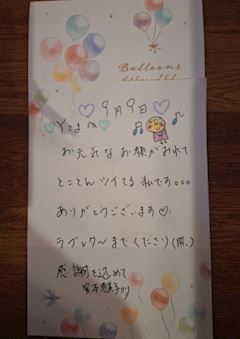 Balloons
9月9日
Yこま
お元気なお顔がみれて
とことんツイてる私です。。。
ありがとうございます♡
ラブレターまでください(照)
感謝を込めて